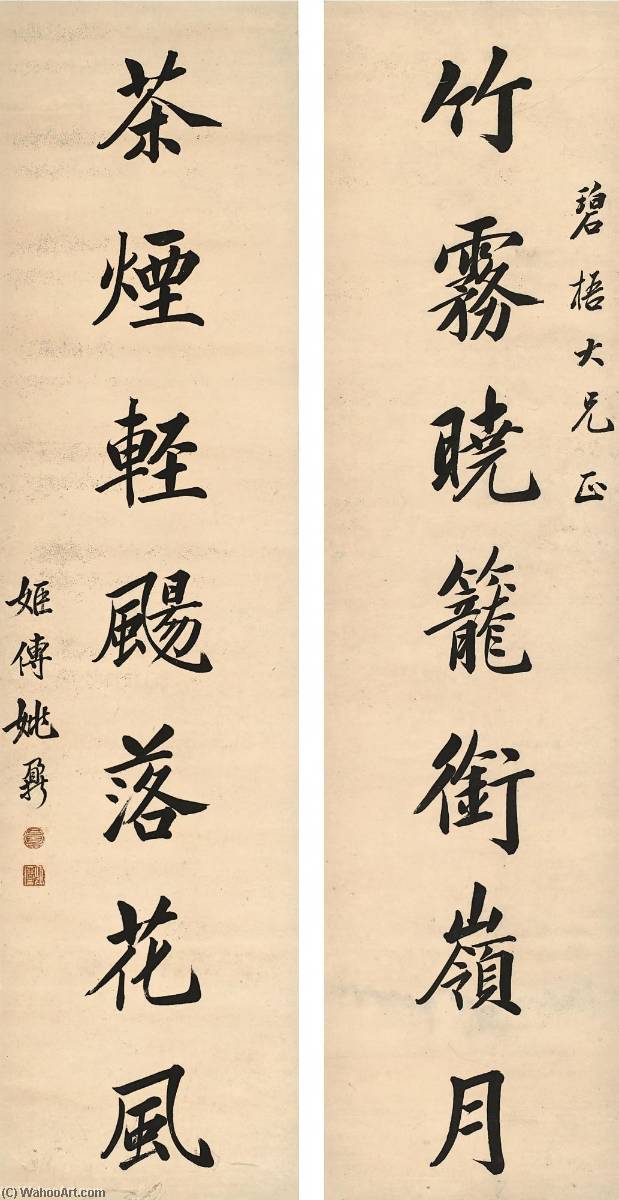 碧梧大兄正
竹霧曉籠銜嶺月
茶煙輕颺落花風
姬傳姚鼐
(C) WahooArt.com